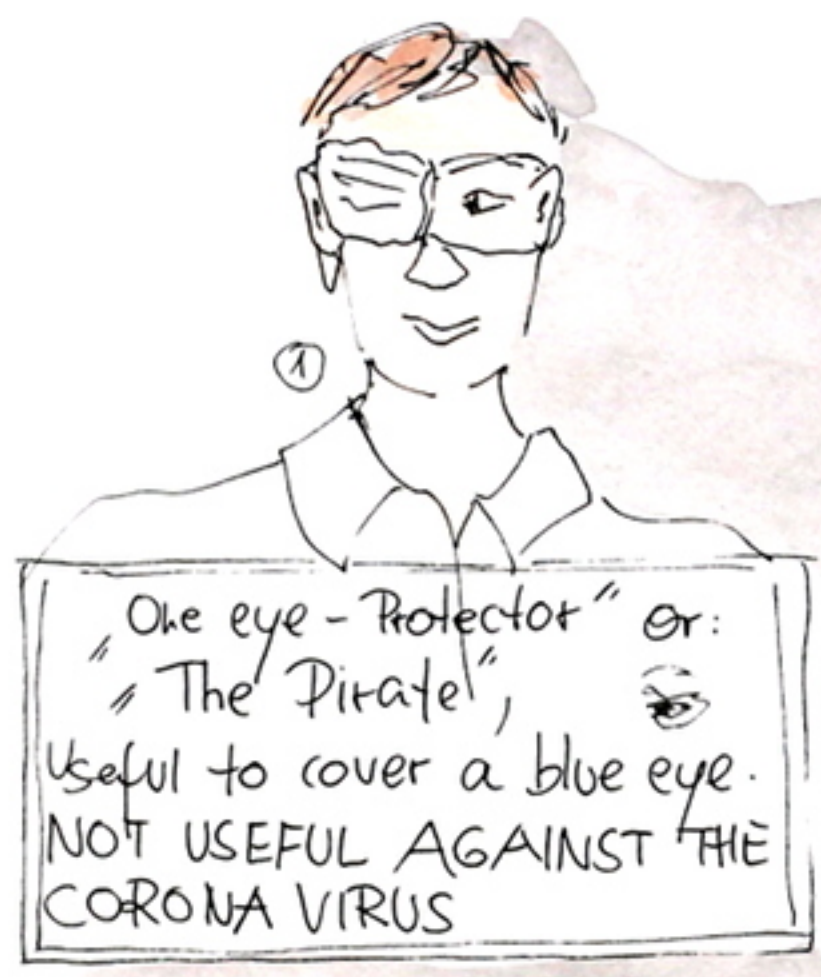 ①
„One eye - Protector" or:
„The Pirate",
Useful to cover a blue eye.
NOT USEFUL AGAINST THE
CORONA VIRUS